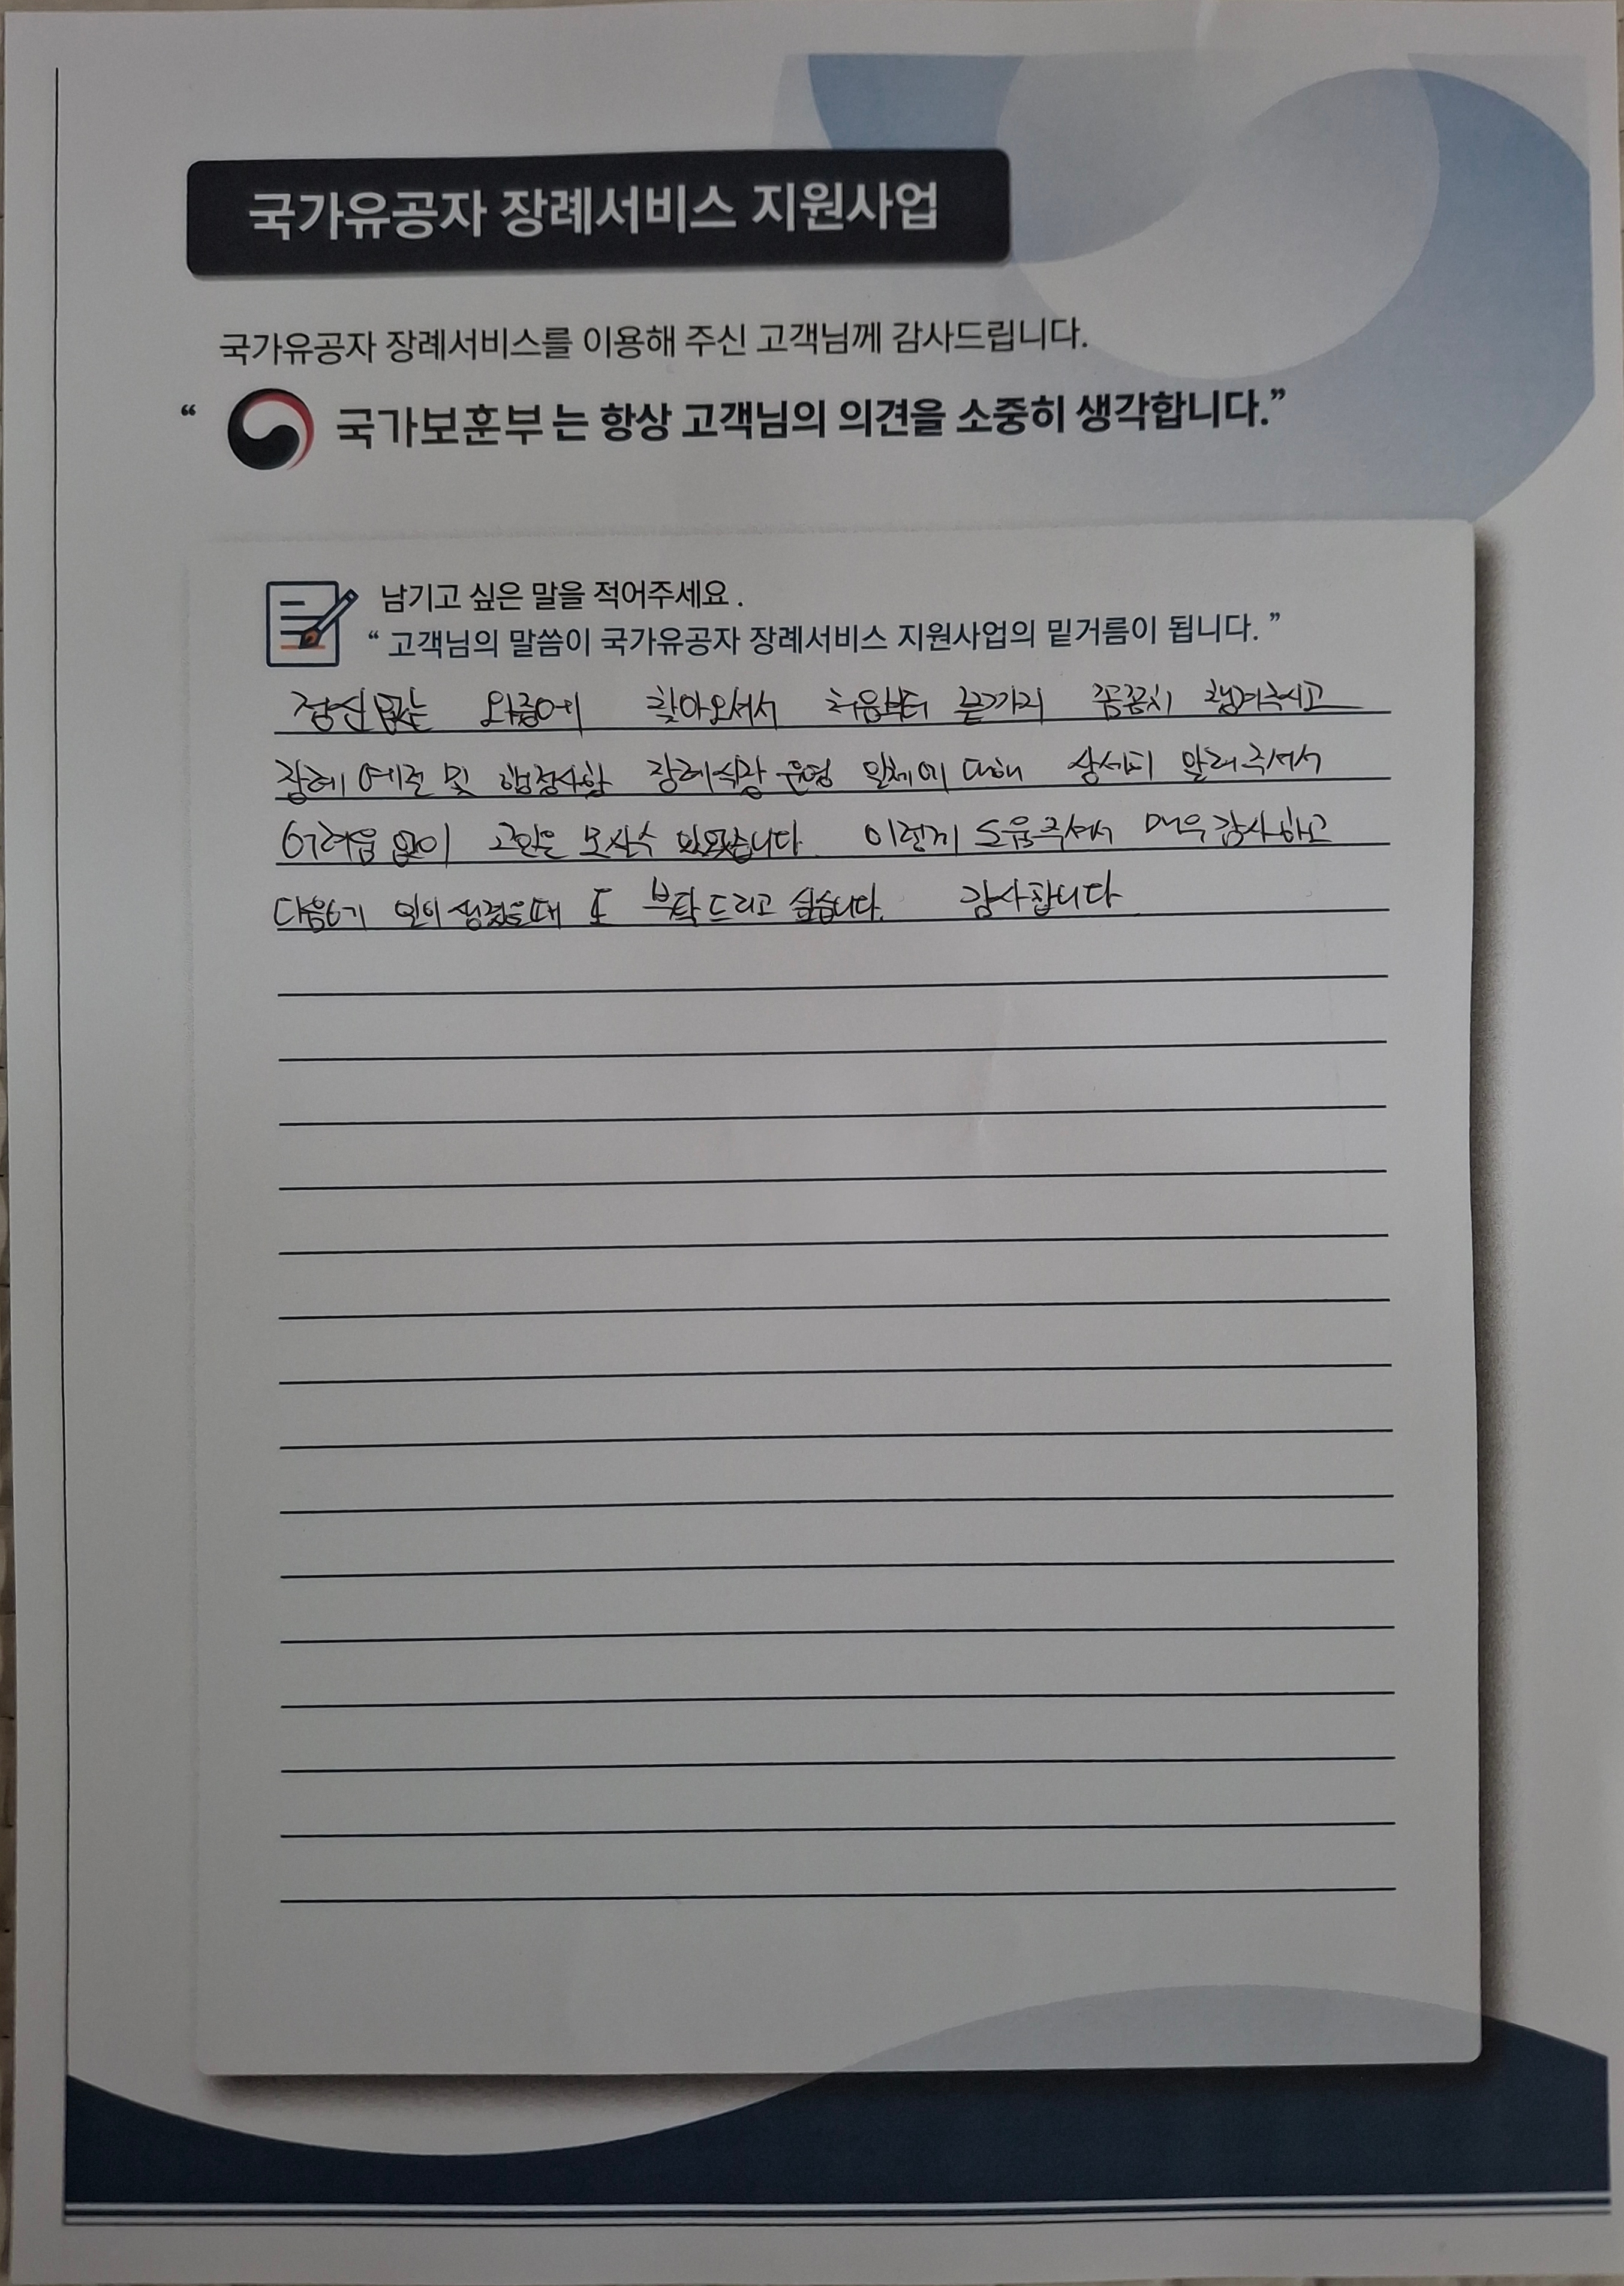 국가유공자 장례서비스 지원사업
국가유공자 장례서비스를 이용해 주신 고객님께 감사드립니다.
“ 국가보훈부는 항상 고객님의 의견을 소중히 생각합니다.”
남기고 싶은 말을 적어주세요.
“ 고객님의 말씀이 국가유공자 장례서비스 지원사업의 밑거름이 됩니다. ”
정신없는 와중에 찾아오셔서 처음부터 끝까지 꼼꼼히 챙겨주시고
장례 예절 및 행정사항 장례식장 운영 일체에 대해 상세히 알려주셔서
어려움 없이 고인을 모실수 있었습니다. 이렇게 도움주셔서 매우 감사하고
다음에 일이 생겼을때 또 부탁드리고 싶습니다. 감사합니다